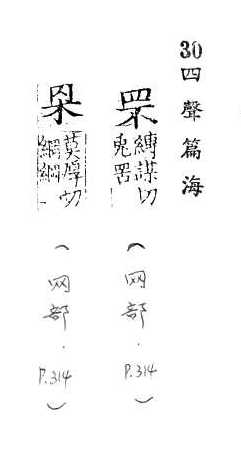 30四聲篇海
罘
縛謀切
兔罟
(网部.P.314)
莫厚切
(网部.P.314)